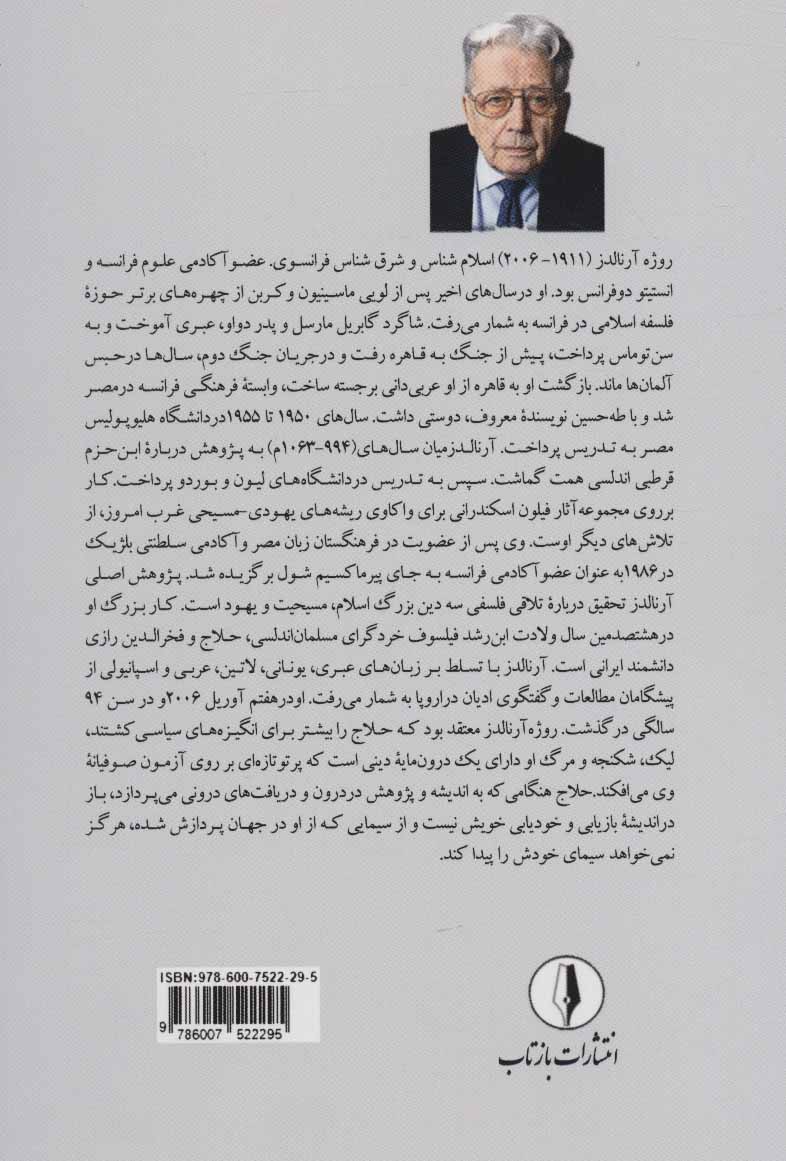 روژه آرنالدز (۱۹۱۱-۲۰۰۶) اسلام شناس و شرق شناس فرانسوی. عضو آکادمی علوم فرانسه و
انستیتو دوفرانس بود. او درسال‌های اخیر پس از لویی ماسینیون و کربن از چهره‌های برتر حوزهٔ
فلسفه اسلامی در فرانسه به شمار می‌رفت. شاگرد گابریل مارسل و پدر دواو، عبری آموخت و به
سن توماس پرداخت، پیش از جنگ به قاهره رفت و درجریان جنگ دوم، سال‌ها درحبس
آلمان‌ها ماند. بازگشت او به قاهره از او عربی‌دانی برجسته ساخت، وابستهٔ فرهنگی فرانسه درمصر
شد و با طه‌حسین نویسندهٔ معروف، دوستی داشت. سال‌های ۱۹۵۰ تا ۱۹۵۵دردانشگاه هلیوپولیس
مصر به تدریس پرداخت. آرنالدزمیان سال‌های(۹۹۴-۱۰۶۳م) به پژوهش دربارهٔ ابن‌حزم
قرطبی اندلسی همت گماشت. سپس به تدریس دردانشگاه‌های لیون و بوردو پرداخت.کار
برروی مجموعه‌آثار فیلون اسکندرانی برای واکاوی ریشه‌های یهودی-مسیحی غرب امروز، از
تلاش‌های دیگر اوست. وی پس از عضویت در فرهنگستان زبان مصر و آکادمی سلطنتی بلژیک
در۱۹۸۶به عنوان عضو آکادمی فرانسه به جای پیرماکسیم شول برگزیده شد. پژوهش اصلی
آرنالدز تحقیق دربارهٔ تلاقی فلسفی سه دین بزرگ اسلام، مسیحیت و یهود است. کار بزرگ او
درهشتصدمین سال ولادت ابن‌رشد فیلسوف خردگرای مسلمان‌اندلسی، حلاج و فخرالدین رازی
دانشمند ایرانی است. آرنالدز با تسلط بر زبان‌های عبری، یونانی، لاتین، عربی و اسپانیولی از
پیشگامان مطالعات و گفتگوی ادیان دراروپا به شمار می‌رفت. اودرهفتم آوریل ۲۰۰۶و در سن ۹۴
سالگی درگذشت. روژه‌آرنالدز معتقد بود که حلاج را بیشتر برای انگیزه‌های سیاسی کشتند،
لیک، شکنجه و مرگ او دارای یک درون‌مایهٔ دینی است که پرتوتازه‌ای بر روی آزمون صوفیانهٔ
وی می‌افکند.حلاج هنگامی که به اندیشه و پژوهش دردرون و دریافت‌های درونی می‌پردازد، باز
دراندیشهٔ بازیابی و خودیابی خویش نیست و از سیمایی که از او در جهان پردازش شده، هرگز
نمی‌خواهد سیمای خودش را پیدا کند.
ISBN:978-600-7522-29-5
9 786007 522295
انتشارات بازتاب